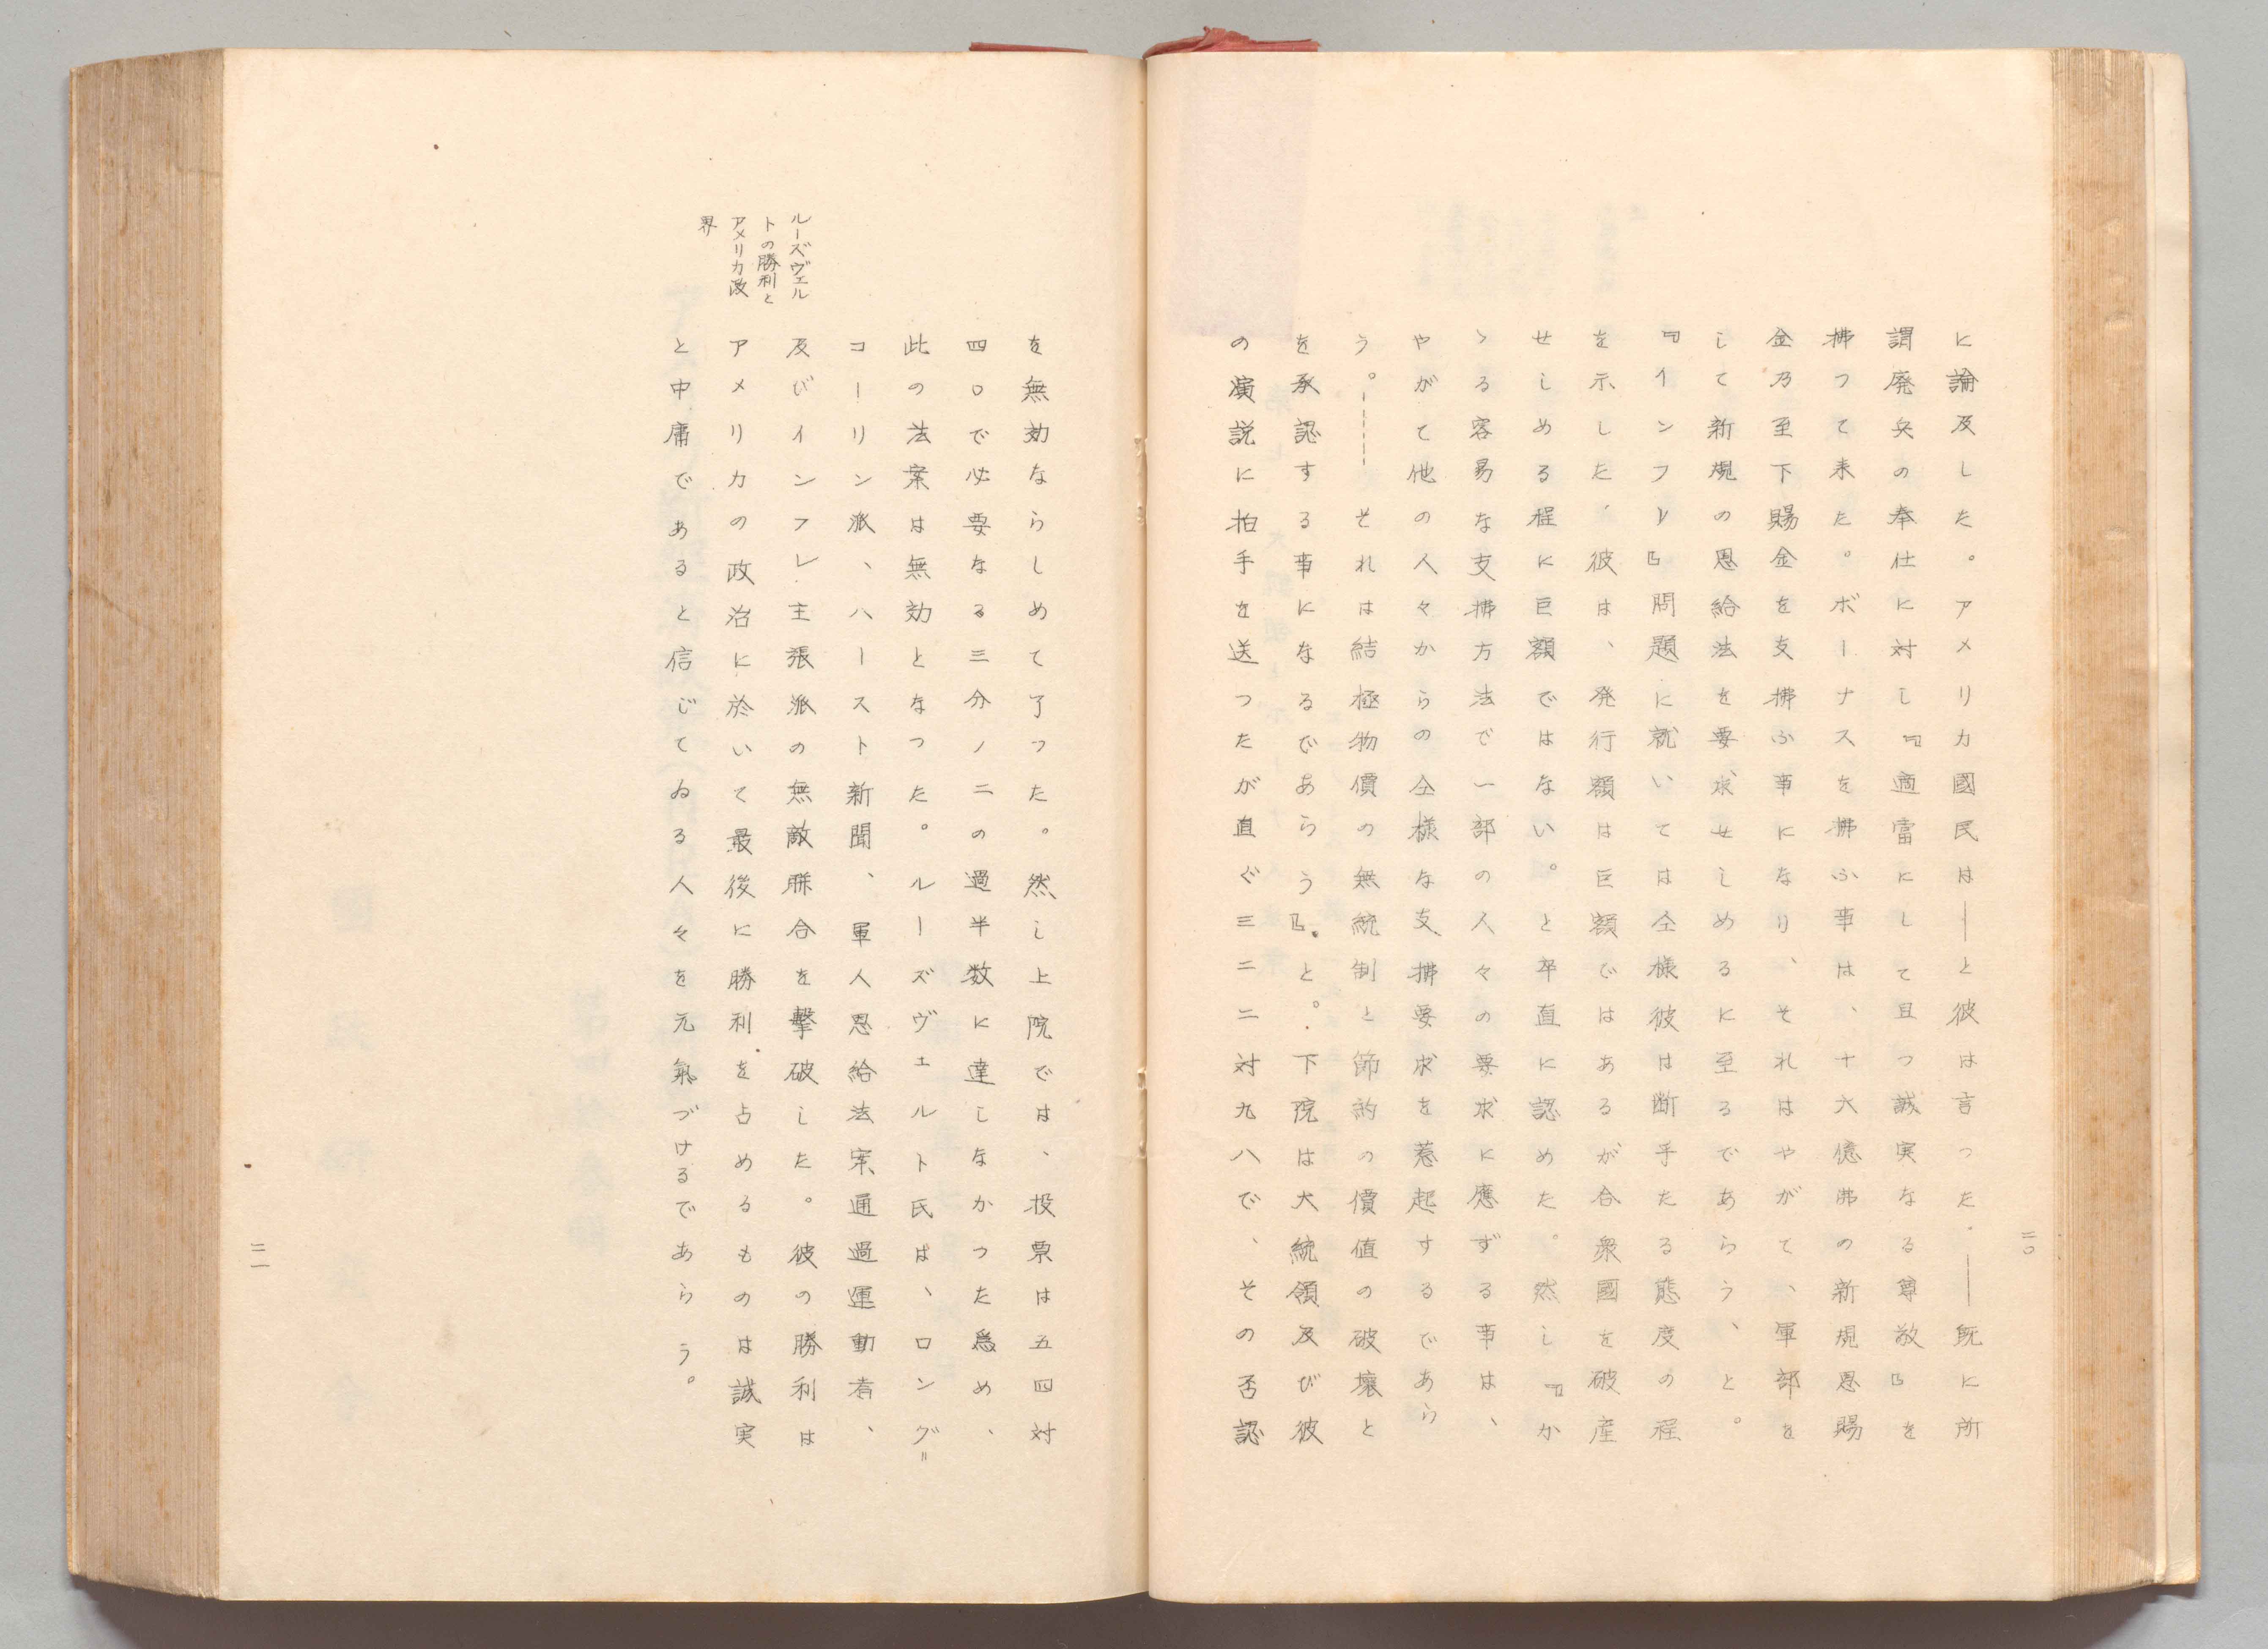 に論及した。アメリカ國民は──と彼は言つた。──既に所
謂廃兵の奉仕に対し『適當にして且つ誠実なる尊敬』を
拂つて来た。ボーナスを拂ふ事は、十六億弗の新規恩賜
金乃至下賜金を支拂ふ事になり、それはやがて、軍部を
して新規の恩給法を要求せしめるに至るであらう、と。
『インフレ』問題に就いては仝様彼は断乎たる態度の程
を示した、彼は、発行額は巨額ではあるが合衆國を破産
せしめる程に巨額ではない。と卒直に認めた。然し『か
ゝる容易な支拂方法で一部の人々の要求に應ずる事は、
やがて他の人々からの仝様な支拂要求を惹起するであら
う。------それは結極物價の無統制と節約の價値の破壊と
を承認する事になるであらう』。と。下院は大統領及び彼
の演説に拍手を送つたが直ぐ三二二対九八で、その否認
二〇
を無効ならしめて了つた。然し上院では、投票は五四対
四〇で必要なる三分ノ二の過半数に達しなかつた爲め、
此の法案は無効となつた。ルーズヴェルト氏は、ロング=
コーリン派、ハースト新聞、軍人恩給法案通過運動者、
及びインフレ主張派の無敵聯合を撃破した。彼の勝利は
アメリカの政治に於いて最後に勝利を占めるものは誠実
と中庸であると信じてゐる人々を元氣づけるであらう。
ルーズヴェル
トの勝利と
アメリカ政
界
二一